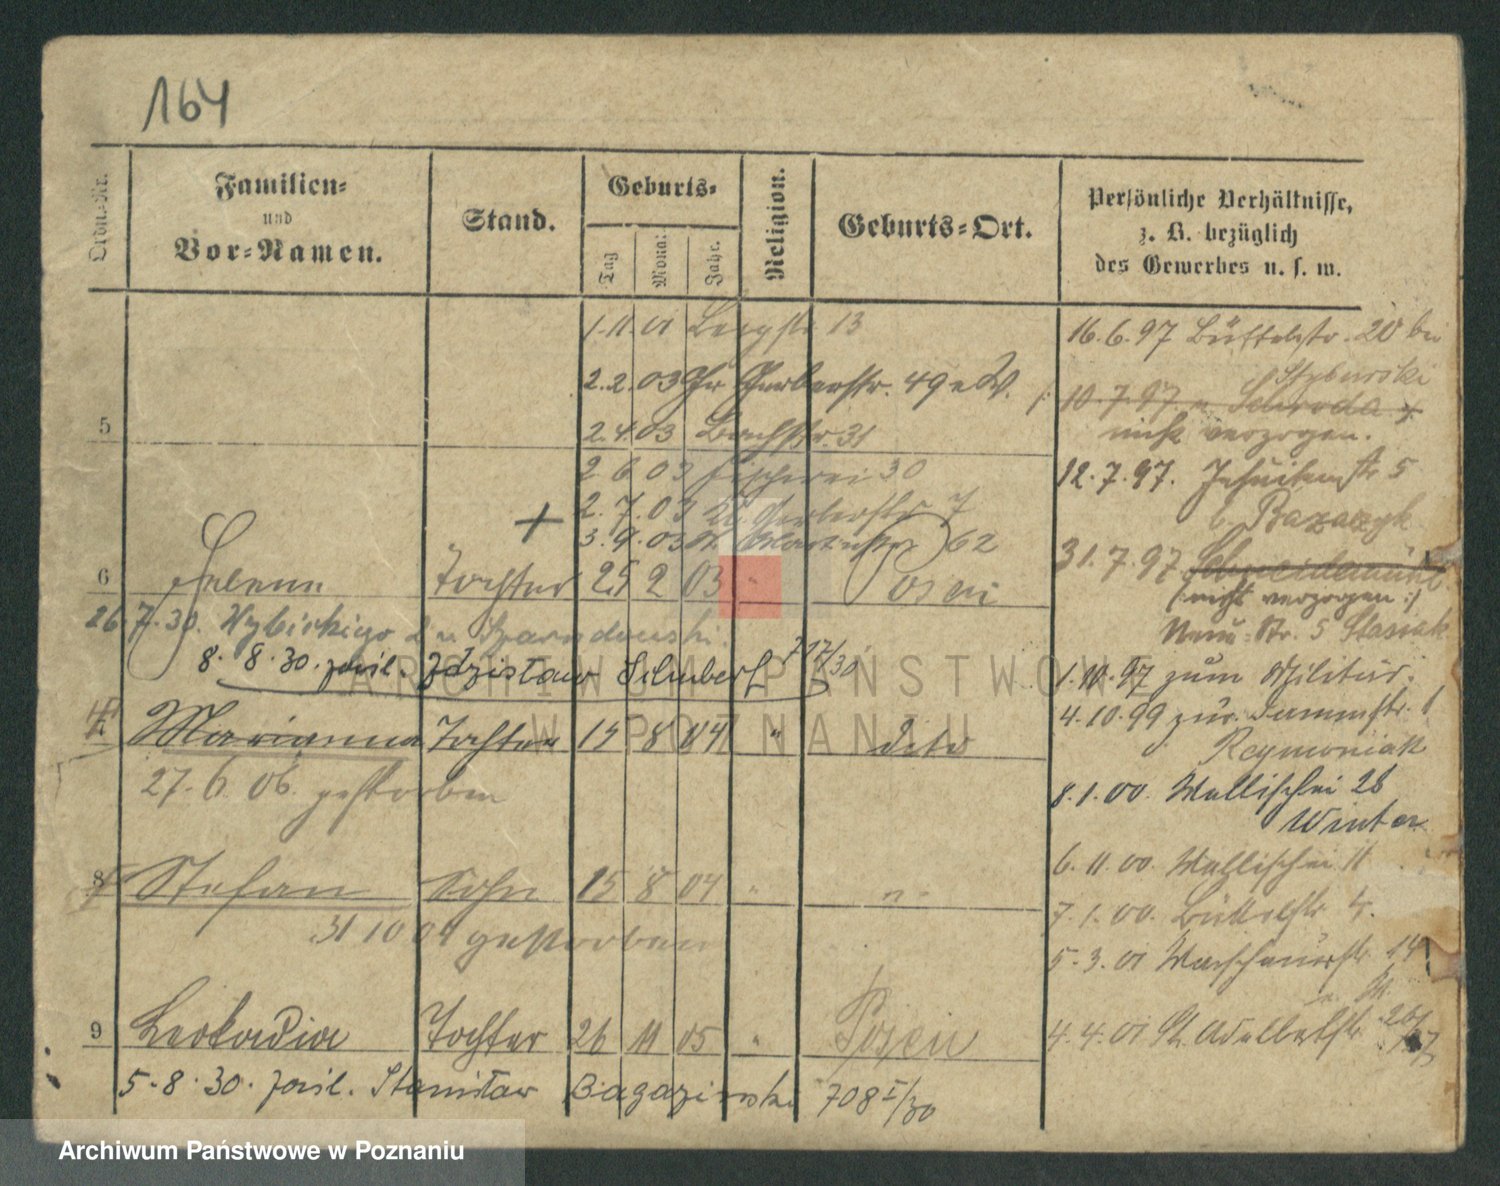 164
Ordn.-Nr.
Familien- und Vor-Namen.
Stand.
Geburts-
Tag
Mona:
Jahr.
Religion.
Geburts-Ort.
Persönliche Verhältnisse,
z. B. bezüglich
des Gewerbes u. s. w.
1.11.01 13
2.2.03 Gr Gerberstr. 49 a W.
5
2.4.03 Bachstr. 31
2 6.03 Fischerei 30
2.7.03 Kl. Gerberstr 7
3.9.03 St. Martinstr 62
6 Helena Tochter 25 2 03 " Posen
26.7.30. Wybickiego 2 u
8.8.30. zasil. Zdzisław Schubert 717/30
Marianna Tochter 15 8 04 " dito
27.6.06. gestorben
8 Stefan Sohn 15 8 04 " "
31 10 04 gestorben
9 Leokadia Tochter 26 11 05 " Posen
5.8.30. zasil. Stanisław Bagaziński 708 I/30
16.6.97 Büttelstr. 20 bei
Styburski
10.7.97 n. Schroda
nicht verzogen.
12.7.97. Jesuitenstr 5
b. Bazarzyk
31.7.97 Schneidemühl
(: nicht verzogen :)
Neue-Str. 5 Stasiak
1.10.97 zum Militär.
4.10.99 zur. Dammstr. 1
Reymoniak
8.1.00. Wallischei 28
Winter
6.11.00. Wallischei 11
7.1.00. Büttelstr 4.
5.3.01 Warschauerstr 14
4.4.01 St. Adalbertstr 26/27
ARCHIWUM PAŃSTWOWE
W POZNANIU
Archiwum Państwowe w Poznaniu